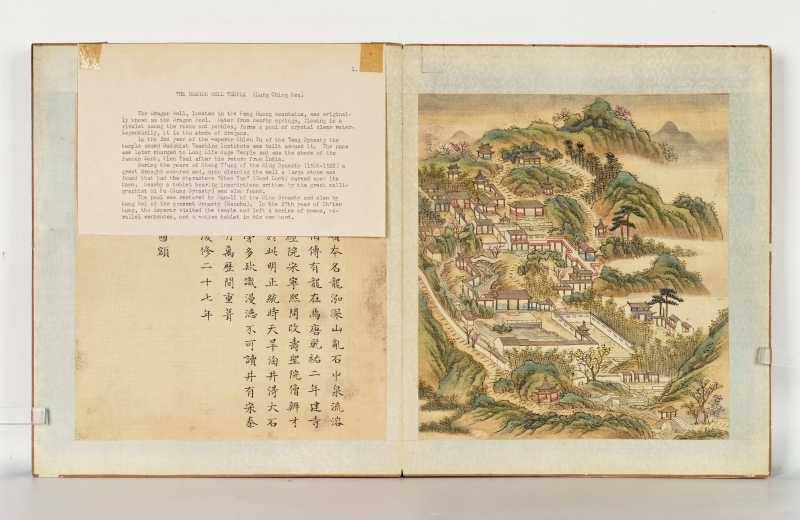 1.
THE DRAGON WELL TEMPLE (Lung Ching
The Dragon Well, located in the Feng Huang mountains, was original-
ly known as the Dragon Pool. Water from nearby springs, flowing in a
rivulet among the rocks and pebbles, forms a pool of crystal clear water.
Reputedly, it is the abode of dragons.
In the 2nd year of the emperor Chien Yu of the Tang Dynasty the
temple and Buddhist Teaching Institute was built around it. The name
was later changed to Long Life Sage Temple and was the abode of the
famous monk, Pien Tsai after his return from India.
During the years of Cheng T'ung of the Ming Dynasty a
great drought occured and, upon cleaning the well a large stone was
found that had the characters carved upon its
face. Nearby a tablet bearing inscriptions written by the great calli-
graphist Mi Fu (Sung Dynasty) was also found.
The pool was restored by of the Ming Dynasty and also by
of the present Dynasty (Manchu). In the 27th year of Ch'ien
Lung, the Emperor visited the temple and left a series of poems, pa-
rallel sentences, and a votive tablet in his own hand.
本名龍泓深山亂石中泉流溶
傳有龍在焉唐乾祐二年建寺
經院宋熙間改壽聖院僧辨才
於此明正統時天旱淘井得大石
字多缺識漫漶不可讀井有宋秦
萬歷間重葺
修二十七年
額